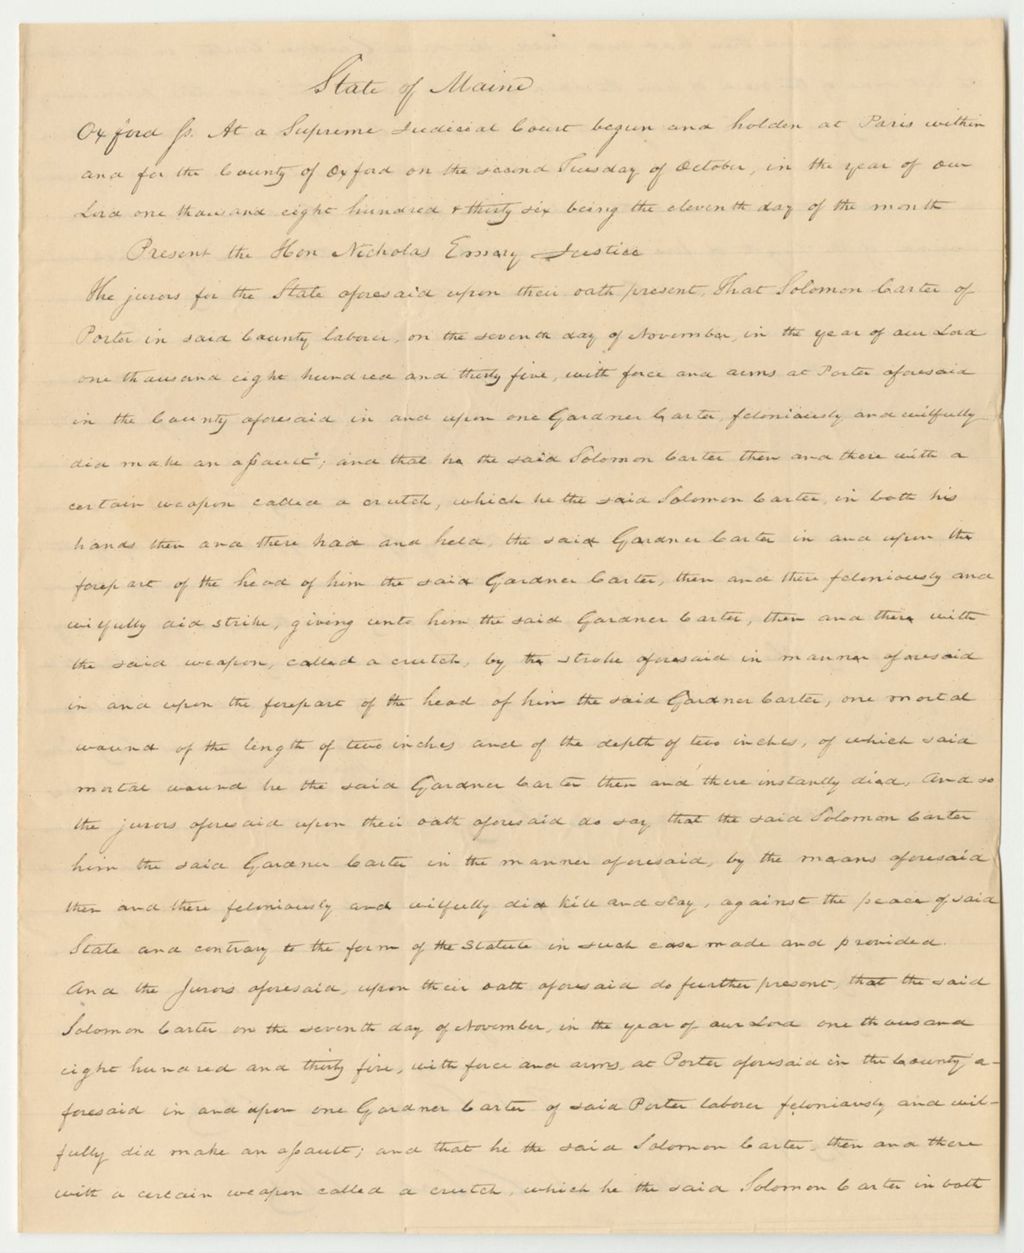 State of Maine
Oxford ss. At a Supreme Judicial Court begun and holden at Paris within
and for the County of Oxford on the second Tuesday of October, in the year of our
Lord one thousand eight hundred & thirty six being the eleventh day of the month
Present the Hon Nicholas Emery Justice
The jurors for the State aforesaid upon their oath present, That Solomon Carter of
Porter in said County laborer, on the seventh day of November, in the year of our Lord
one thousand eight hundred and thirty five, with force and arms at Porter aforesaid
in the County aforesaid in and upon one Gardner Carter, feloniously and wilfully
did make an assault; and that he the said Solomon Carter then and there with a
certain weapon called a crutch, which he the said Solomon Carter, in both his
hands then and there had and held, the said Gardner Carter in and upon the
forepart of the head of him the said Gardner Carter, then and there feloniously and
wilfully did strike, giving unto him the said Gardner Carter, then and there with
the said weapon, called a crutch, by the stroke aforesaid in manner aforesaid
in and upon the forepart of the head of him the said Gardner Carter, one mortal
wound of the length of two inches and of the depth of two inches, of which said
mortal wound he the said Gardner Carter then and there instantly died, And so
the jurors aforesaid upon their oath aforesaid do say, that the said Solomon Carter
him the said Gardner Carter in the manner aforesaid, by the means aforesaid
then and there feloniously and wilfully did kill and slay, against the peace of said
State and contrary to the form of the Statute in such case made and provided.
And the Jurors aforesaid, upon their oath aforesaid do further present, that the said
Solomon Carter on the seventh day of November, in the year of our Lord one thousand
eight hundred and thirty five, with force and arms, at Porter aforesaid in the County a-
foresaid in and upon one Gardner Carter of said Porter laborer feloniously and wil-
fully did make an assault; and that he the said Solomon Carter, then and there
with a certain weapon called a crutch, which he the said Solomon Carter in both